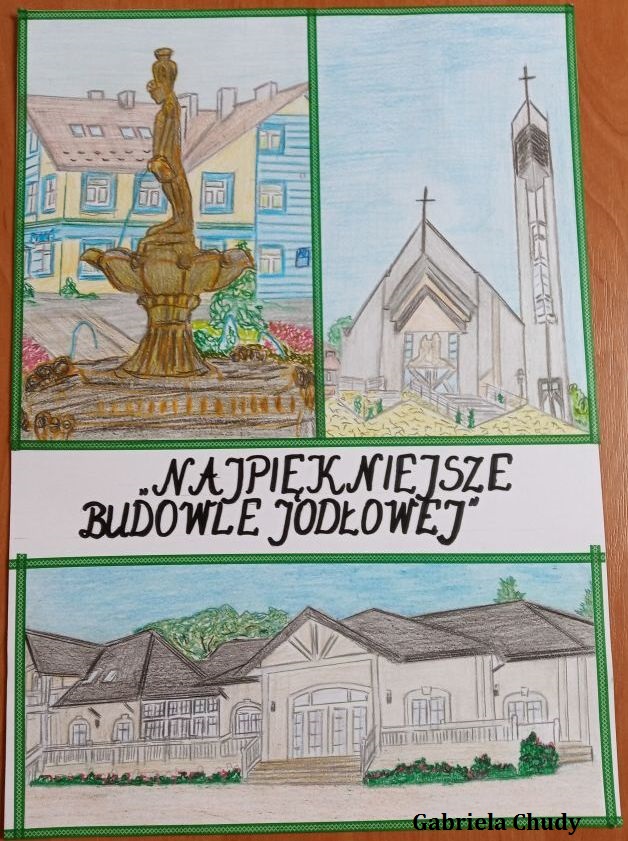 „NAJPIĘKNIEJSZE
BUDOWLE JODŁOWEJ"
Gabriela Chudy